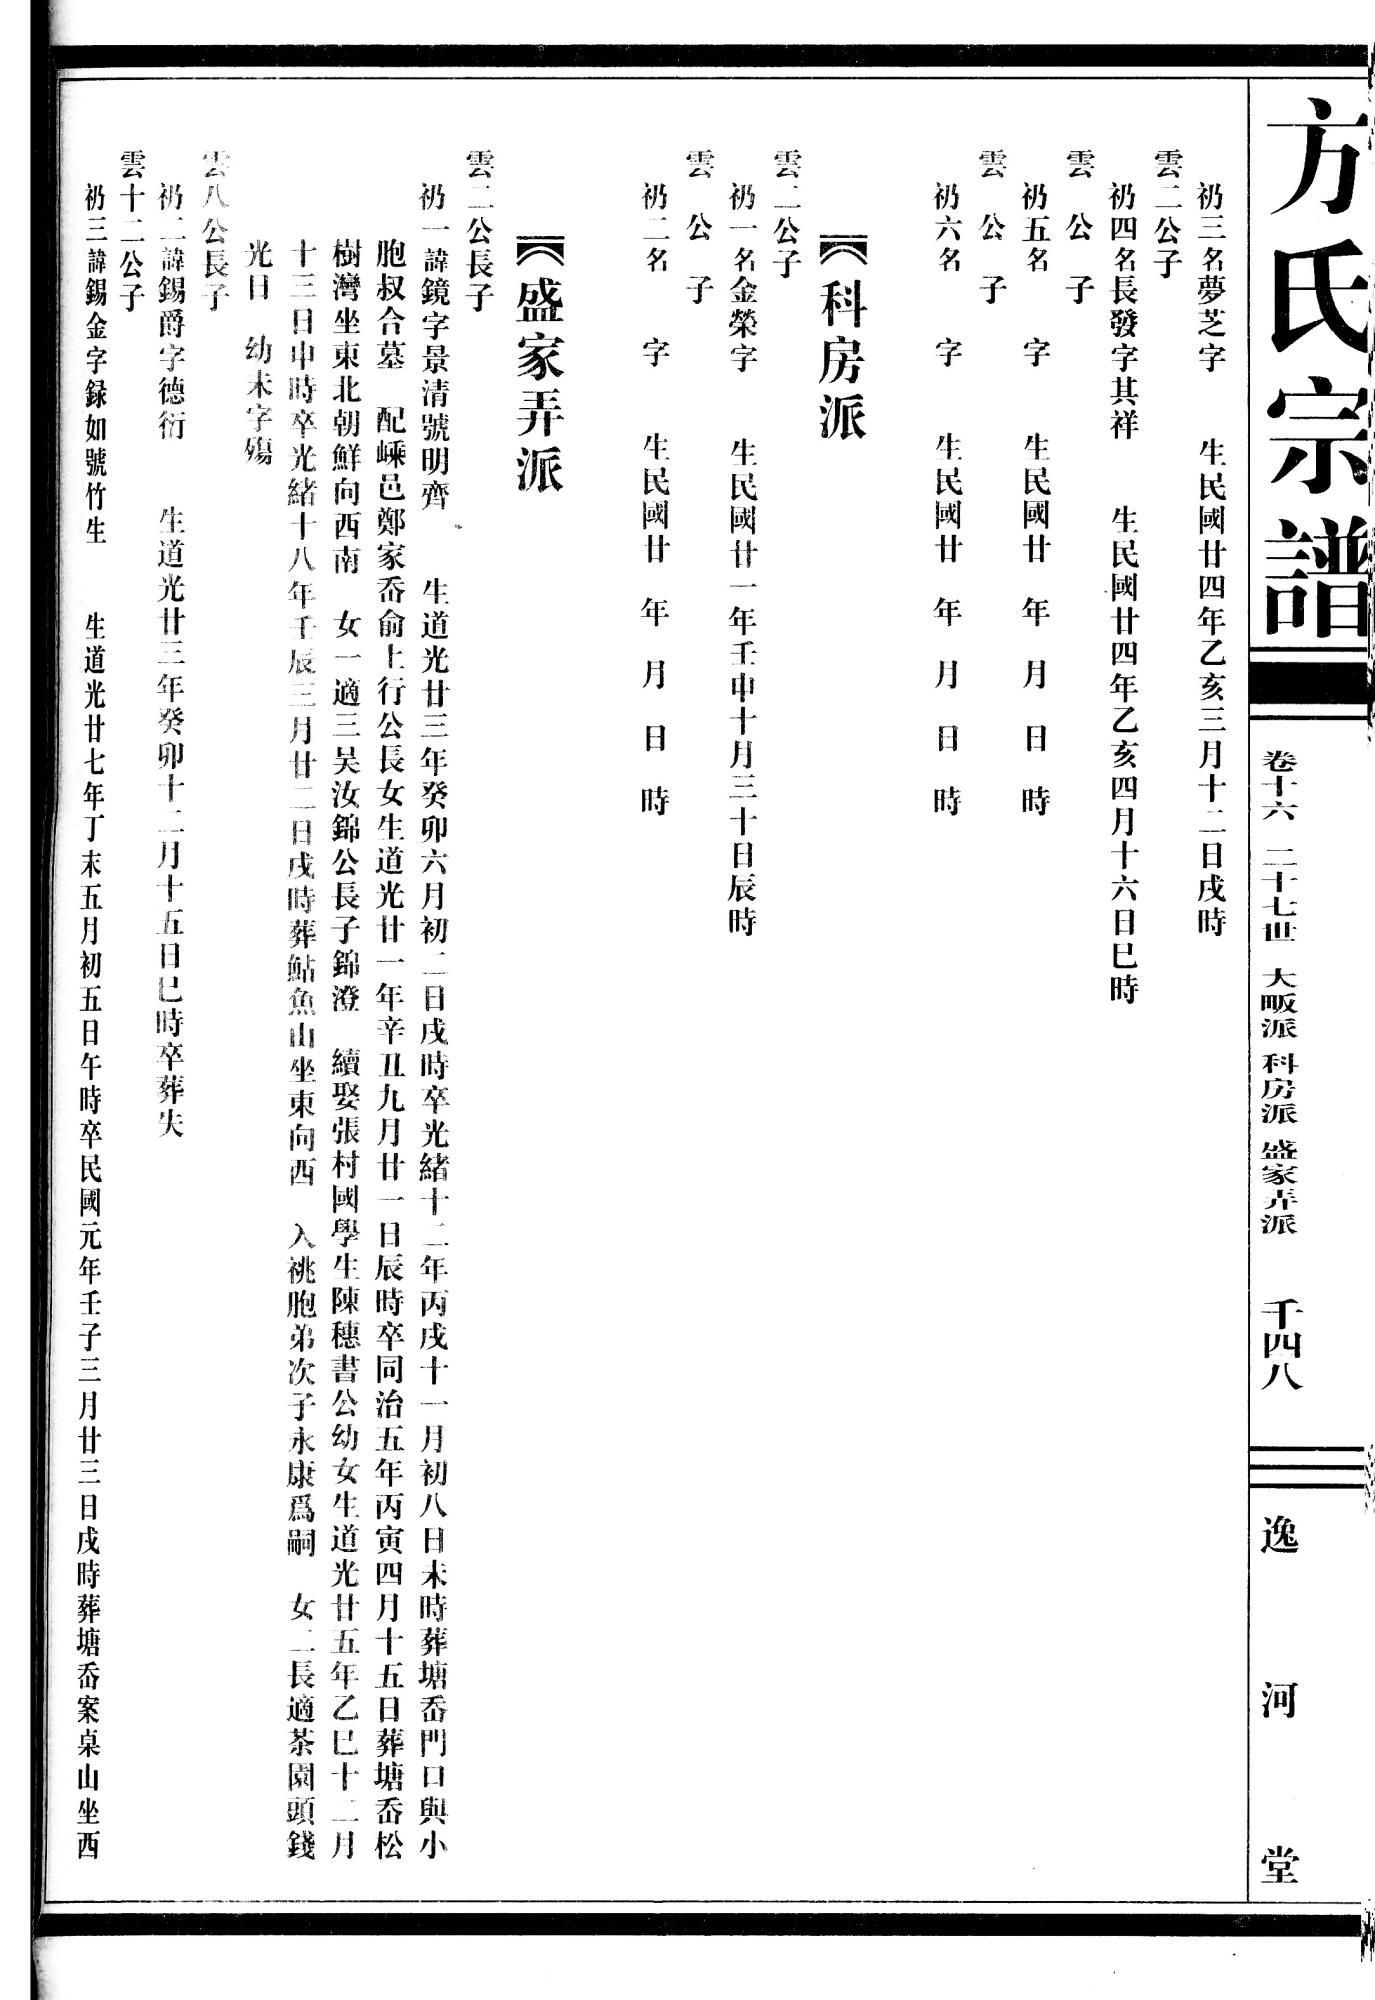 方氏宗譜
卷十六 二十七世 大畈派 科房派 盛家弄派 千四八
逸河堂
礽三名夢芝字 生民國廿四年乙亥三月十二日戌時
雲二公子
礽四名長發字其祥 生民國廿四年乙亥四月十六日巳時
雲 公 子
礽五名 字 生民國廿 年 月 日 時
雲 公 子
礽六名 字 生民國廿 年 月 日 時
科房派
雲二公子
礽一名金榮字 生民國廿一年壬申十月三十日辰時
雲 公 子
礽二名 字 生民國廿 年 月 日 時
盛家弄派
雲二公長子
礽一諱鏡字景清號明齊 生道光廿三年癸卯六月初二日戌時卒光緒十二年丙戌十一月初八日未時葬塘岙門口與小
胞叔合墓 配嵊邑鄭家岙俞上行公長女生道光廿一年辛丑九月廿一日辰時卒同治五年丙寅四月十五日葬塘岙松
樹灣坐東北朝鮮向西南 女一適三吴汝錦公長子錦澄 續娶張村國學生陳穗書公幼女生道光廿五年乙巳十二月
十三日申時卒光緒十八年壬辰三月廿二日戌時葬鮎魚山坐東向西 入祧胞弟次子永康爲嗣 女二長適茶園頭錢
光日 幼未字殤
雲八公長子
礽二諱錫爵字德衍 生道光廿三年癸卯十二月十五日巳時卒葬失
雲十二公子
礽三諱錫金字録如號竹生 生道光廿七年丁末五月初五日午時卒民國元年壬子三月廿三日戌時葬塘岙案桌山坐西